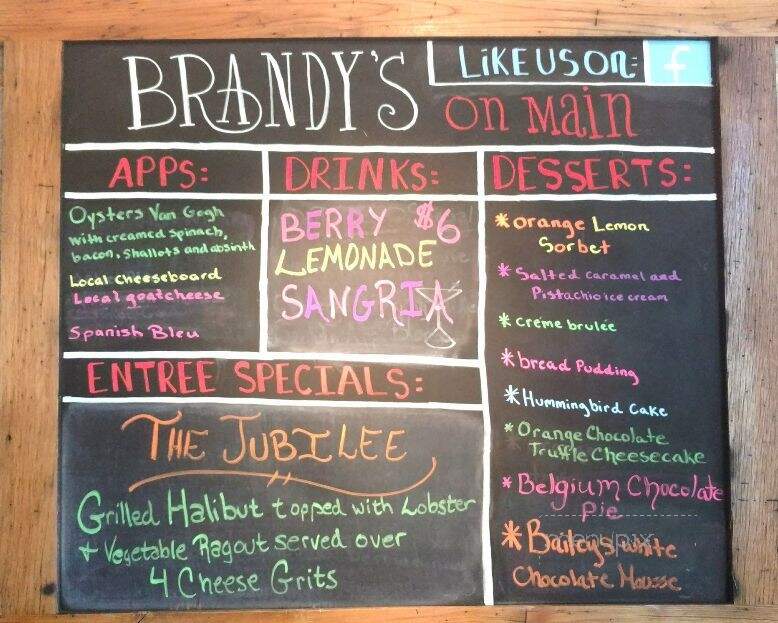 BRANDY'S
LiKE US On:
f
on Main
APPS:
Oysters Van Gogh
with creamed spinach,
bacon, shallots and absinth
Local cheeseboard
Local goatcheese
Spanish Bleu
DRINKS:
BERRY $6
LEMONADE
SANGRIA
ENTREE SPECIALS:
THE JUBILEE
Grilled Halibut topped with Lobster
+ Vegetable Ragout served over
4 Cheese Grits
DESSERTS:
*orange Lemon
Sorbet
*Salted caramel and
Pistachio ice cream
*créme brulée
*bread Pudding
*Hummingbird Cake
*Orange Chocolate
Truffle Cheesecake
*Belgium Chocolate
Pie
*Bailey's white
Chocolate Mousse
menupix